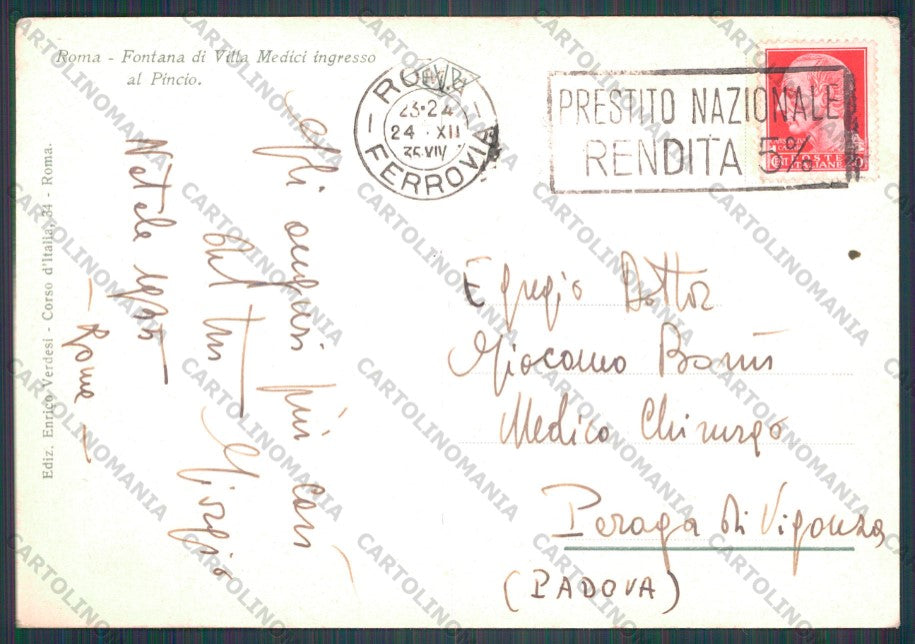 Roma - Fontana di Villa Medici ingresso
al Pincio.
Ediz. Enrico Verdesi - Corso d'Italia, 34 - Roma.
ROMA
23·24
24 · XII
35 XIV
FERROVIA
PRESTITO NAZIONALE
RENDITA 5%
POSTE
ITALIANE
Gli auguri più cari
dal tuo Giorgio
Natale 1935
- Roma -
Egregio Dottor
Giacomo
Medico Chirurgo
Peraga di Vigonza
(PADOVA)
CARTOLINOMANIA